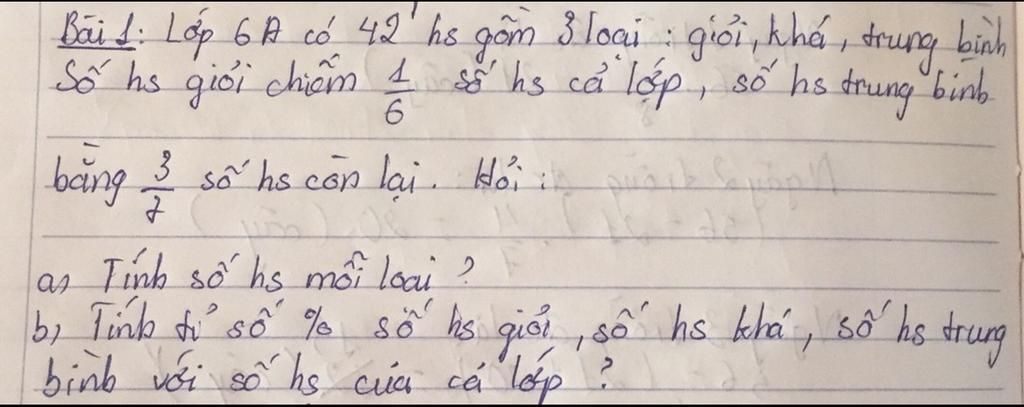 Bài 1: Lớp 6A có 42 hs gồm 3 loại : giỏi, khá, trung bình
Số hs giỏi chiếm 1/6 số hs cả lớp, số hs trung bình
bằng 3/7 số hs còn lại. Hỏi :
a, Tính số hs mỗi loại ?
b, Tính tỉ số % số hs giỏi, số hs khá, số hs trung
bình với số hs của cả lớp ?